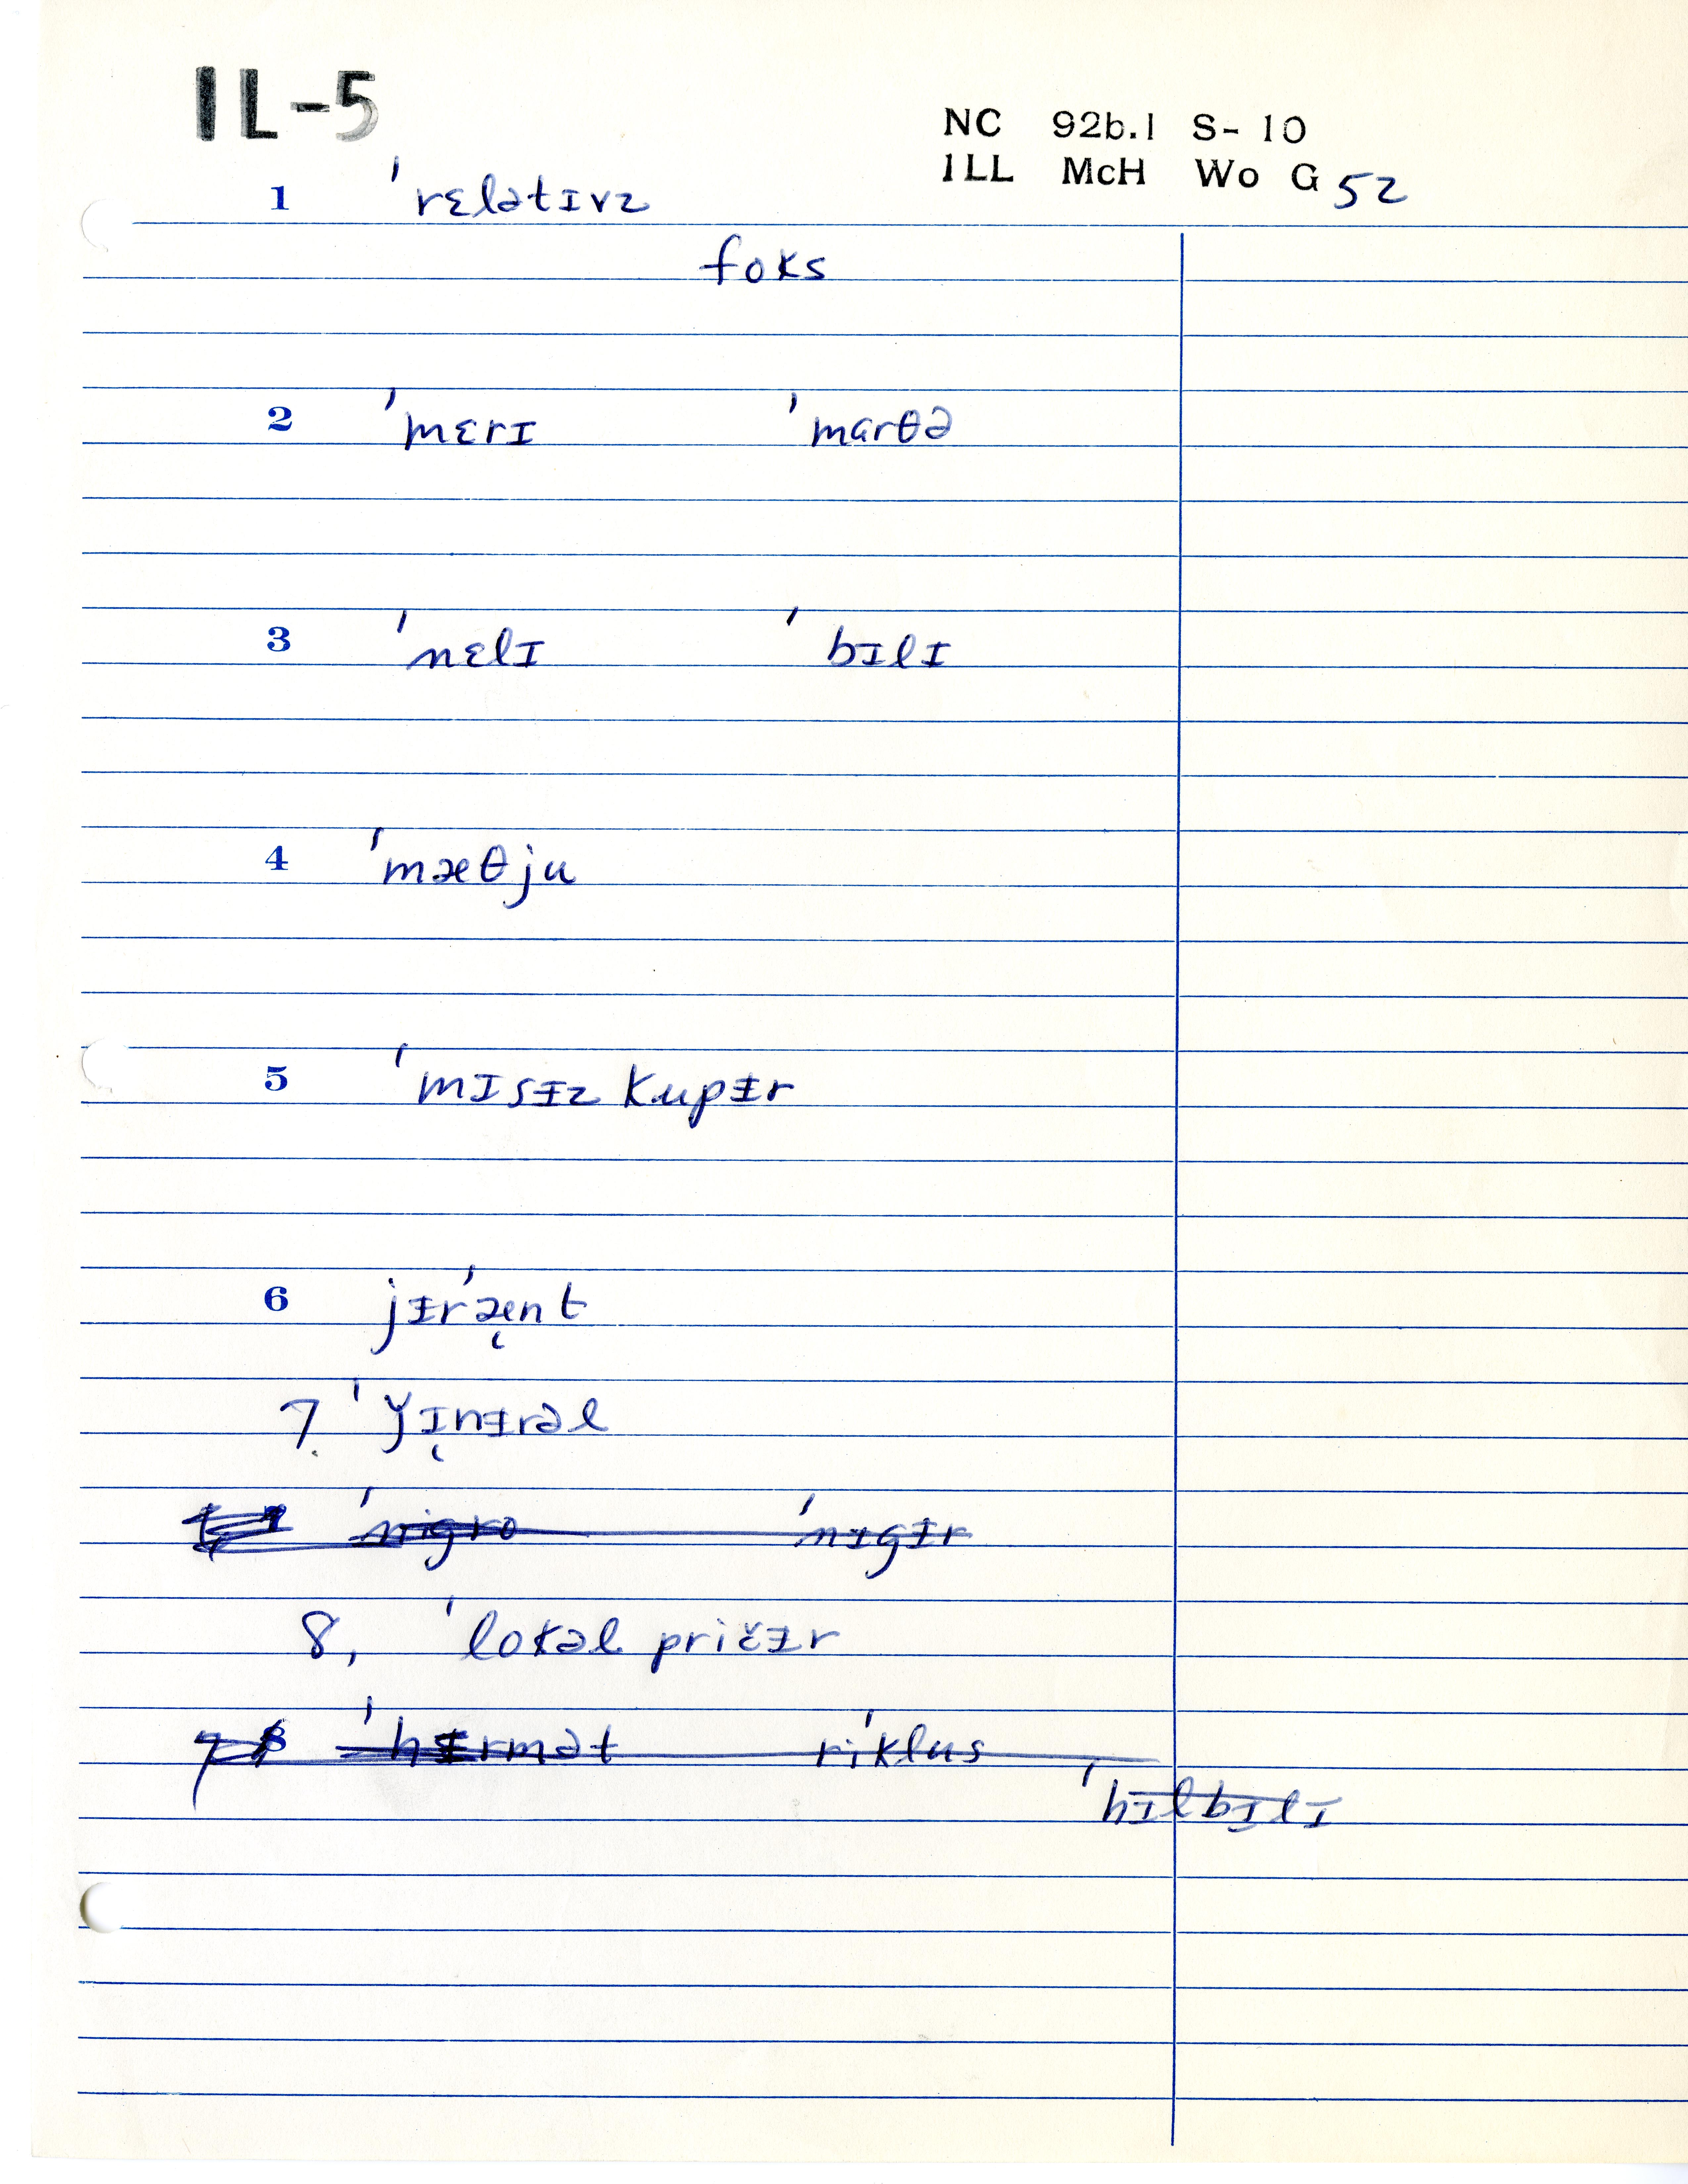 IL-5
NC 92b.1 S- 10
ILL McH Wo G 52
1 ˈrɛlətɪvz
foks
2 ˈmɛrɪ ˈmɑrθə
3 ˈnɛlɪ ˈbɪlɪ
4 ˈmæθju
5 ˈmɪsɨz kupɨr
6 jɨrˈæ̨nt
7. ˈǰɪ̨nɨrəl
ˈnigro ˈnɪgɨr
8, ˈlokəl pričɨr
7 8 ˈhɨrmət riˈklus
ˈhɪlbɪlɪ